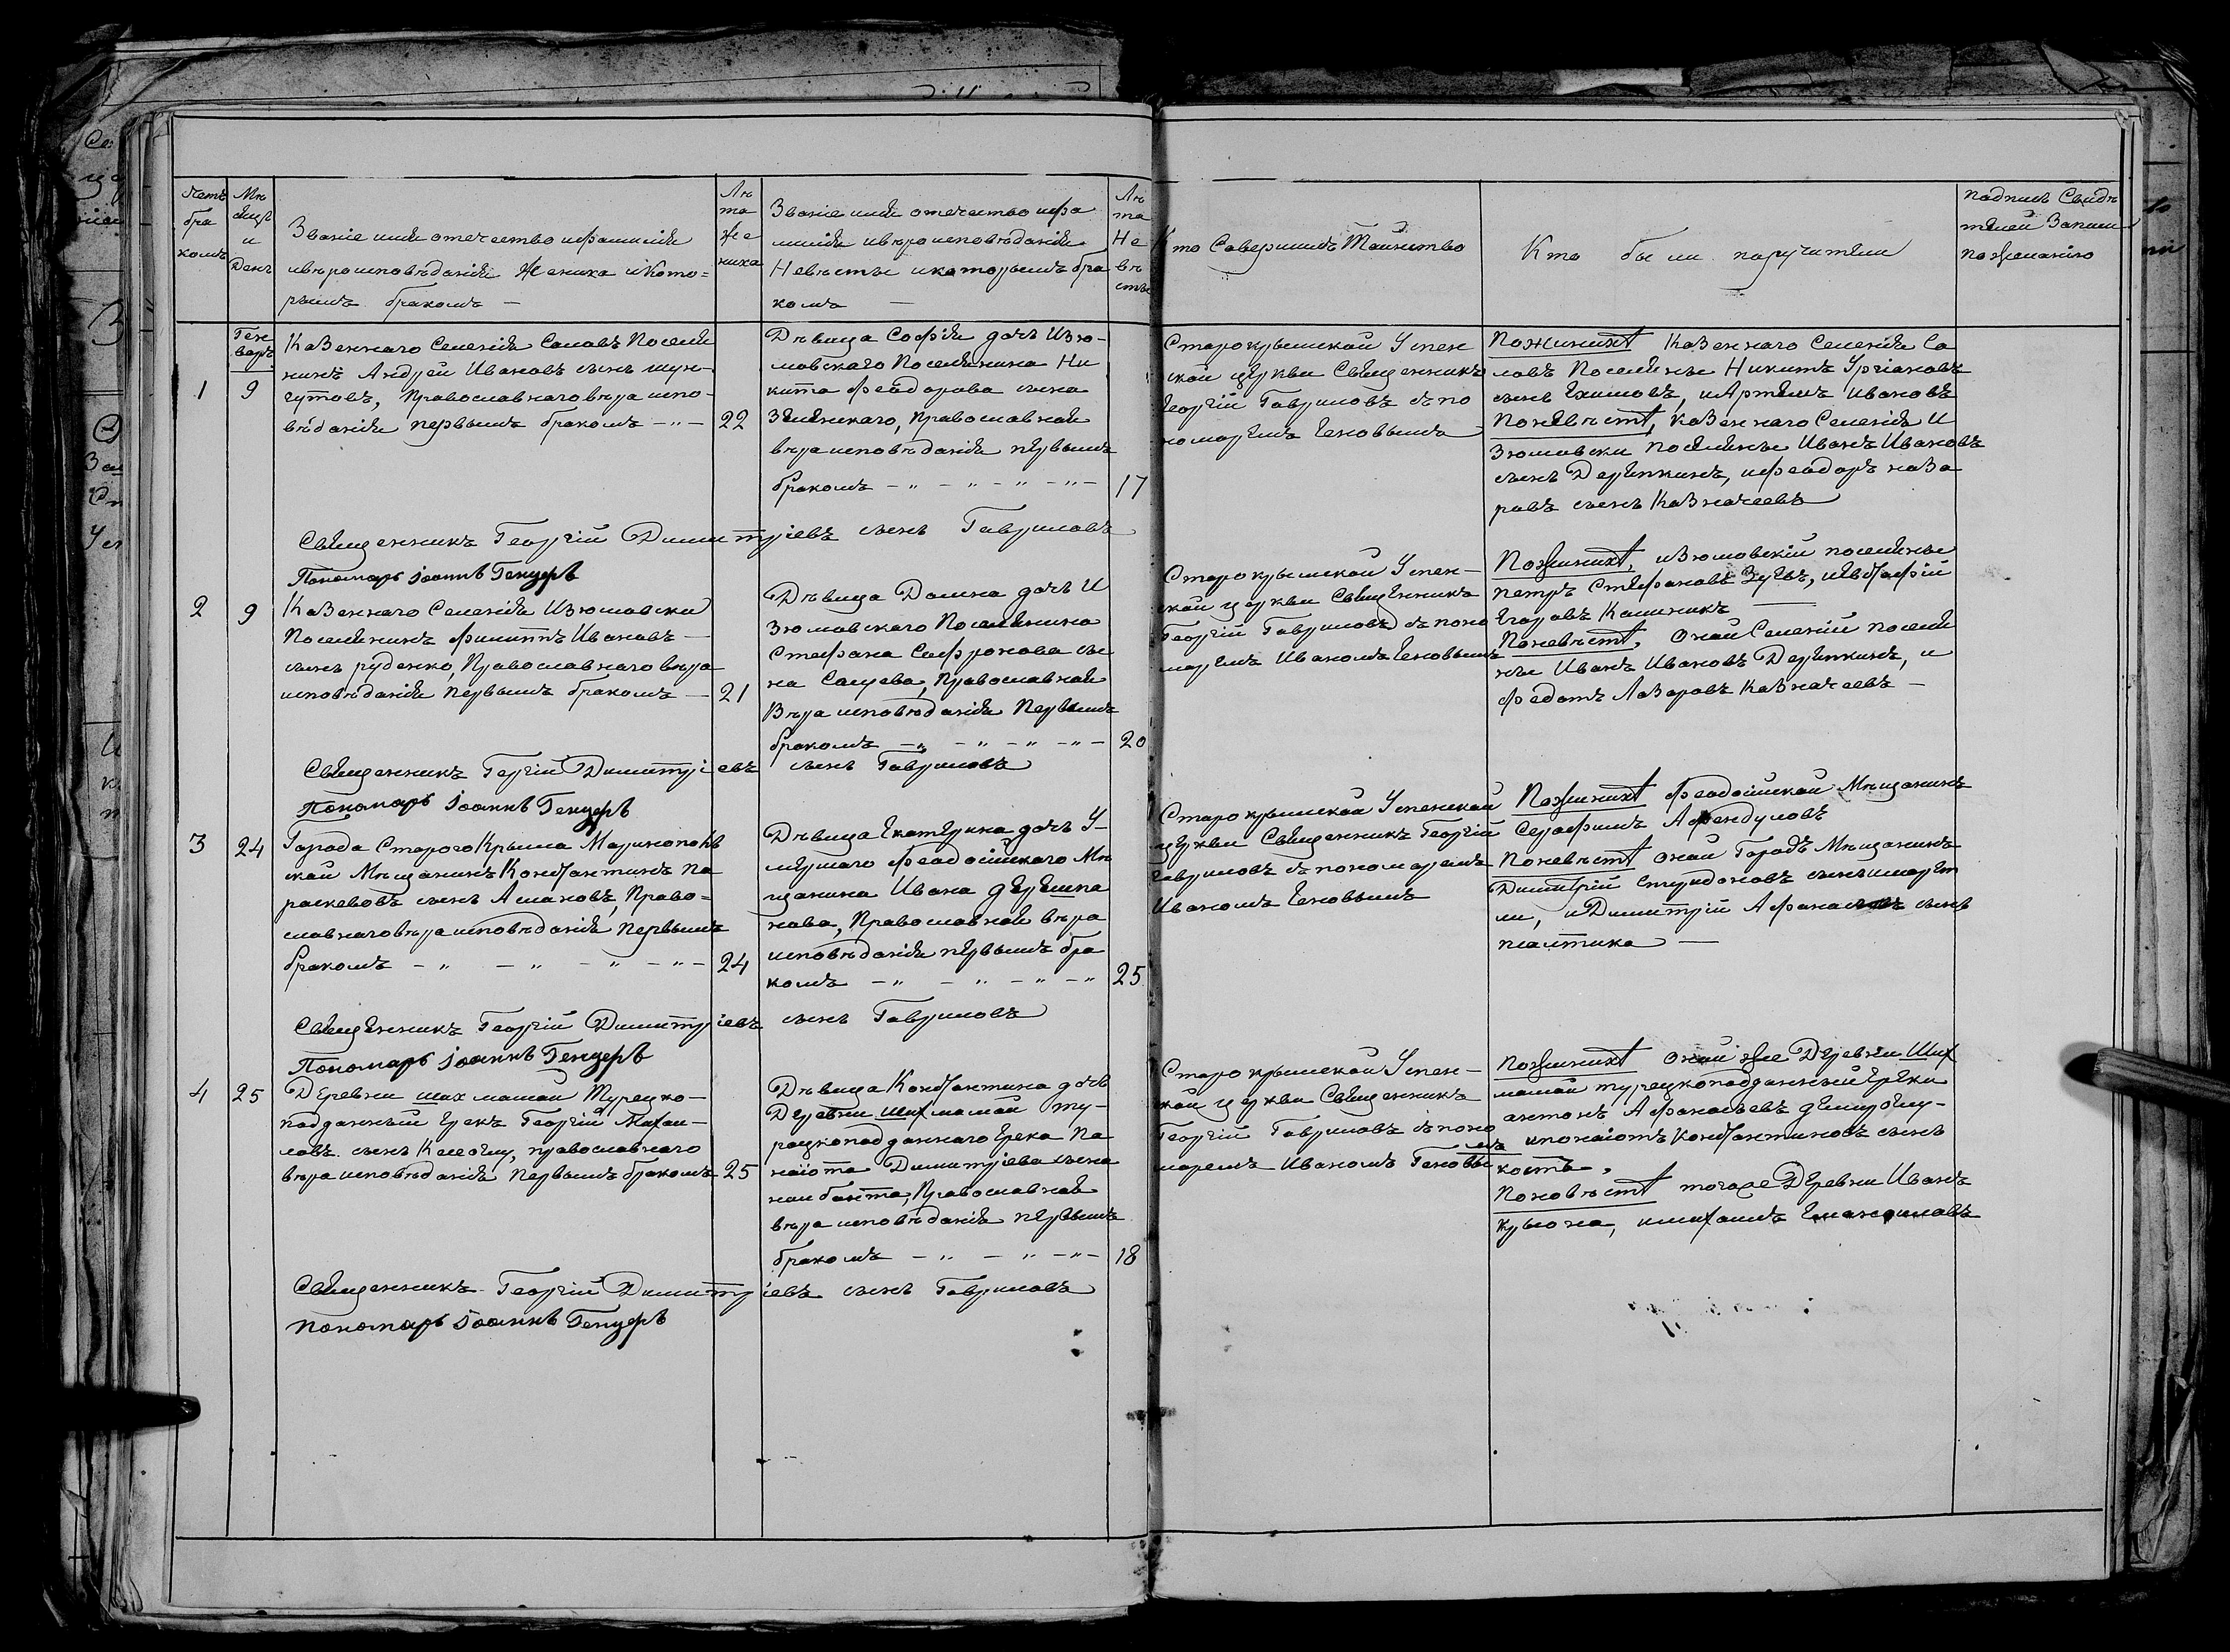 Счетъ
бра
комъ
Мѣ
сяцъ
и
День
Званіе имя отечество и фамилія
и вѣроисповѣданія Жениха и Кото=
рымъ бракомъ —
Лѣ
та
Же
ниха
Званіе имя отечество и фа
милія и вѣроисповѣданія
Невѣсты и которымъ бра
комъ —
Лѣ
та
Не
вѣ
сты
Кто Совершилъ Таинство
Кто были поручители
подпись Свидѣ
телей Записи
по Желанію
Ген
варь
1
9
Казеннаго Селенія Саловъ Поселя
нинъ Андрей Ивановъ сынъ
Православнаго вѣра испо-
вѣданія первымъ бракомъ — „ —
22
Дѣвица Софія дочь Изю-
мовскаго Поселянина Ни
кита Феодорова сына
Зеленскаго, Православной
вѣра исповѣданія первымъ
бракомъ — „ — „ — „ — „ —
17
Старокрымской Успен
ской церкви Священникъ
Георгій Гавриловъ съ по
номаремъ Геновымъ
По женихѣ Казеннаго Селенія Са
ловъ Поселяне Никитъ
сынъ и Артемъ Ивановъ
По невѣстѣ, Казеннаго Селенія И
зюмовски поселяне Иванъ Ивановъ
сынъ Дерипкинъ, и Феодоръ наза
ровъ сынъ Казначеевъ
Священникъ Георгій Димитріевъ сынъ Гавриловъ
Пономарь Іоаннъ Генцеръ
2
9
Казеннаго Селенія Изюмовски
Поселянинъ Филиппъ Ивановъ —
сынъ руденко, Православнаго вѣра
исповѣданія первымъ бракомъ —
21
Дѣвица Домна дочь И
зюмовскаго Поселянина
Стефана Сафронова сы
на Сащева, Православной
Вѣра исповѣданія Первымъ
бракомъ — „ — „ — „ — „ —
20
Старокрымской Успен-
ской церкви Священникъ
Георгій Гавриловъ съ поно
маремъ Иваномъ Геновымъ
По женихѣ, изюмовскіи поселяне
петръ Стефановъ Зуевъ, и Евстафій
Егоровъ Калиникъ —
По невѣстѣ, оной Селеніи поселя
не Иванъ Ивановъ Дерипкинъ, и
Федотъ Лазаровъ Казначеевъ —
Священникъ Гергій Димитріевъ сынъ Гавриловъ
Пономарь Іоаннъ Генцеръ
3
24
Города Старого Крыма Маріуполь
ской Мѣщанинъ Константинъ Па
раскевовъ сынъ Асмановъ, Право=
славнаго вѣра исповѣданія первымъ
бракомъ — „ — „ — „ — „ —
24
Дѣвица Екатерина дочь У-
мершаго Феодосійскаго Мѣ
щанина Ивана
нова, Православной вѣра
исповѣданія первымъ бра
комъ — „ — „ — „ — „
25
Старокрымской Успенской
церкви Священникъ Георгій
Гавриловъ съ пономаремъ
Иваномъ Геновымъ
По женихѣ Феодосійской Мѣщанинъ
Серафимъ Афендуловъ
По невѣстѣ оной Городъ Мѣщанинъ
Димитрій Спиридоновъ сынъ
ли, и Димитрій Афанасьевъ сынъ
псалтика —
Священникъ Георгій Димитріевъ сынъ Гавриловъ
Пономарь Іоаннъ Генцеръ
4
25
Деревни шах мамай Турецко-
подданный Грекъ Георгій Михаи-
ловъ сынъ православнаго
вѣра исповѣданія первымъ бракомъ
25
Дѣвица Константина дочь
Деревни Шихмамай ту-
рецкоподданнаго Грека Па
наіота Димитріева сына
Православной
вѣра исповѣданія первымъ
бракомъ — „ — „ — „ —
18
Старокрымской Успен-
ской церкви Священникъ
Георгій Гавриловъ съ поно
маремъ Иваномъ Геновы
мъ
По женихѣ оной же Деревни Ших
мамай турецкоподданный Греки
антонъ Афанасьевъ
и понаіотъ Константиновъ сынъ
костѣ,
По невѣстѣ тогоже Деревни Иванъ
и михаилъ Емануиловъ
Священникъ Георгій Димитріевъ сынъ Гавриловъ
Пономарь Іоаннъ Генцеръ